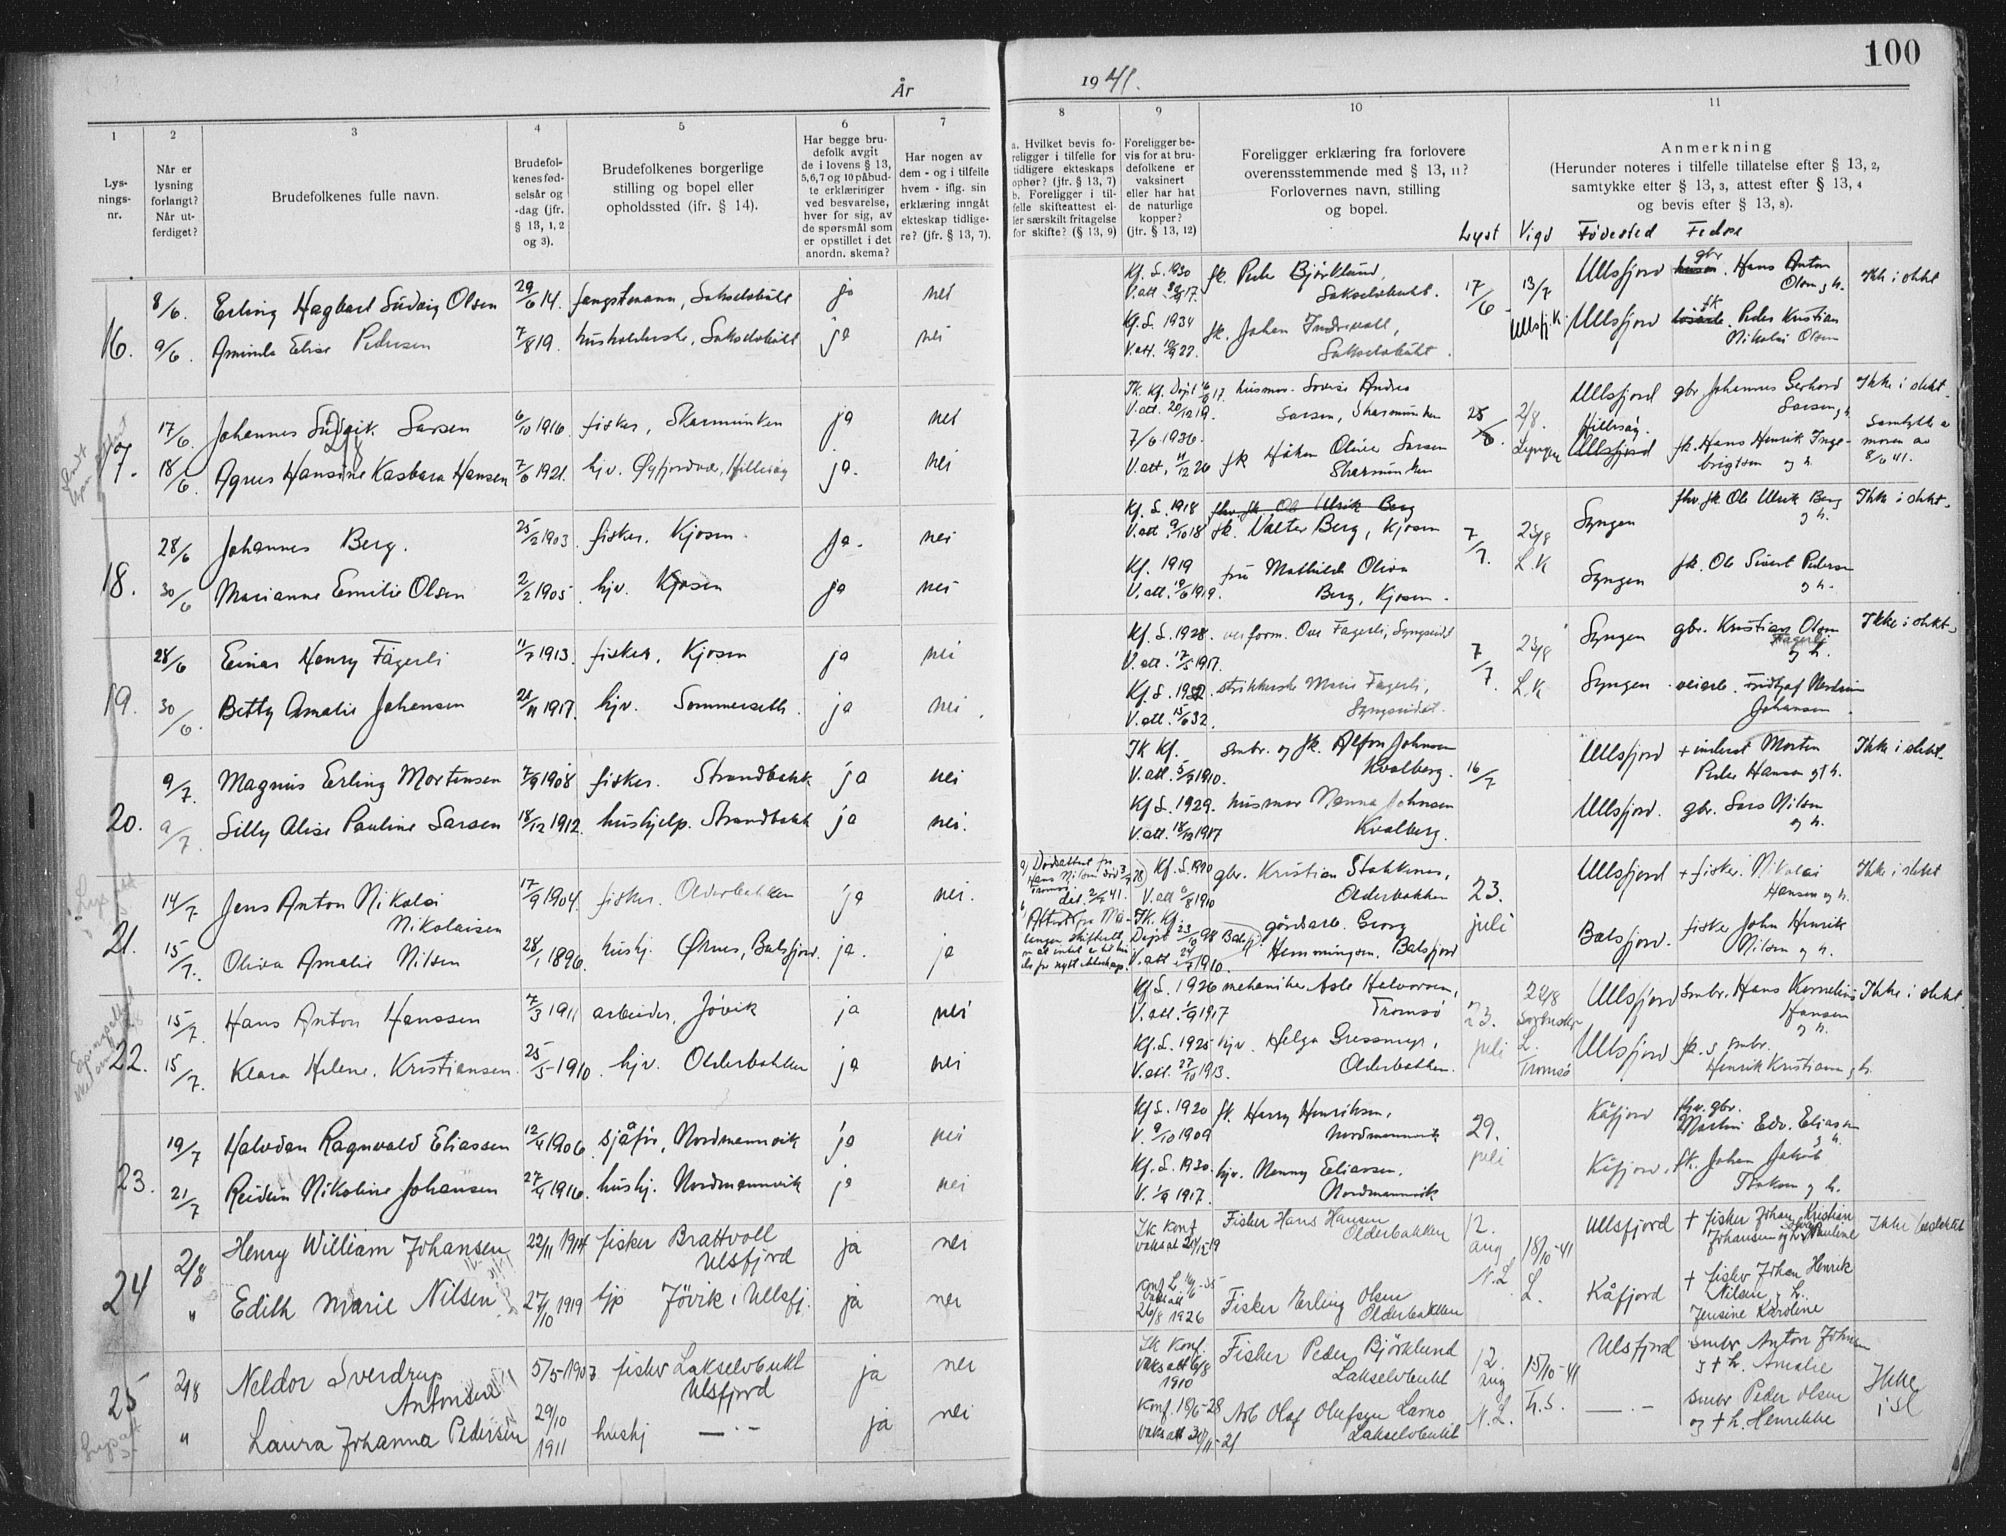 100
År 1941.
1 2 3 4 5 6 7 8 9 10 11
Lysnings-nr.
Når er lysning forlangt? Når utferdiget?
Brudefolkenes fulle navn.
Brudefolkenes fødselsår og -dag (jfr. § 13, 1, 2 og 3).
Brudefolkenes borgerlige stilling og bopel eller opholdssted (ifr. § 14).
Har begge brudefolk avgit de i lovens § 13, 5,6,7 og 10 påbudte erklæringer ved besvarelse, hver for sig, av de spørsmål som er opstillet i det anordn. skema?
Har nogen av dem - og i tilfelle hvem - iflg. sin erklæring inngått ekteskap tidligere? (jfr. § 13, 7).
a. Hvilket bevis foreligger i tilfelle for tidligere ekteskaps ophør? (jfr. § 13, 7) b. Foreligger i tilfelle skifteattest eller særskilt fritagelse for skifte? (§ 13, 9)
Foreligger bevis for at brudefolkene er vaksinert eller har hat de naturlige kopper? (jfr. § 13, 12)
Foreligger erklæring fra forlovere overensstemmende med § 13, 11? Forlovernes navn, stilling og bopel.
Anmerkning (Herunder noteres i tilfelle tillatelse efter § 13, 2, samtykke etter § 13, 3, attest efter § 13, 4 og bevis efter § 13, 8).
Lyst Vigd Fødested Fedre
16. 8/6. Erling Hagbart Ludvig Olsen 29/6 14. fangstmann, Lakselvbukt ja nei
Kf. L. 1930 fk. Peder Björklund, Lakselvbukt. 17/6 13/7 Ullsfj. K. Ullsfjord gbr. Hans Anton Olsen og h. Ikke i slekt
9/6. Aminda Elise Pedersen 7/8 19. husholderske, Lakselvbukt ja nei
Kf. L. 1934 fk. Johan Indrevoll, Lakselvbukt. Ullsfjord fk. Peder Kristian Nikolai Olsen
17. 17/6. Johannes Ludvik Larsen 6/10 1916. fisker, Skarmunken ja nei
V. att. 20/12 19. husmor Lovise Andrea Larsen, Skarmunken 2/8. Lyngen Ullsfjord gbr. Johannes Gerhard Larsen og h. Ikke i slekt.
18/6. Agnes Hansine Kasbara Hansen 7/6 1921. hjv. Øyfjordvær, Hillesøy ja. nei
7/6 1936. V. att. 11/12 26 fk Håkon Oliver Larsen Skarmunken Hillesøy. Ullsfjord fk. Hans Henrik Ingebrigtsen og h. samtykke a moren av 8/6 41.
18. 28/6 Johannes Berg. 25/2 1903. fisker. Kjosen. ja. nei
Kf. L. 1918 fhv. fk. Ole Ulrik Berg
V. att 9/10 18 fk. Valter Berg, Kjosen 7/7. 23/8 L.K Lyngen fhv. fk. Ole Ulrik Berg og h. Ikke i slekt.
30/6 Marianne Emilie Olsen 2/2 1905. hjv. Kjosen ja nei
Kf. 1919 fru Mathilde Oliva Berg, Kjosen. Lyngen fk. Ole Sivert Pedersen og h.
19. 28/6 Einar Henry Fagerli 11/7 1913. fisker, Kjosen ja nei
Kf. L. 1928. veiform. Ove Fagerli, Lyngseidet 7/7. 23/8 L.K Lyngen gbr. Kristian Olsen Fagerli og h. Ikke i slekt
V. att. 17/5 1917.
30/6. Betty Amalie Johansen 21/11 1917. hjv. Sommerseth. ja nei.
Kf. L. 1932. strikkerske Marie Fagerli, Lyngseidet. Lyngen veiarb. Johansen.
V. att. 15/6 32.
20. 9/7. Magnus Erling Mortensen 7/9 1908 fisker. Strandbakk ja nei
IK Kf. V. att. 5/9 1910. smbr. og fk. Alfon Johnsen Kvalberg. 16/7 Ullsfjord + inderst Morten Peder Hansen og h. Ikke i slekt.
9/7. Lilly Alise Pauline Larsen 18/12 1912. hushjelp. Strandbakk ja nei.
Kf. L. 1929. husmor Nanna Johnsen Kvalberg. Ullsfjord. gbr. Lars Nilsen og h.
21. 14/7 Jens Anton Nikolai Nikolaisen 17/9 1904. fisker. Olderbakken ja nei.
gbr. Kristian Stakkenes, Olderbakken 23. juli Ullsfjord + fisker. Nikolai Hansen og h. Ikke i slekt
15/7. Oliva Amalie Nilsen 28/1 1896. hushj. Ørnes, Balsfjord. ja. ja
gårdsarb. Georg Hemmingsen. Balsfjord Balsfjord. fisker John Henrik Nilsen og h.
22. 15/7. Hans Anton Hanssen 7/3 1911 arbeider, Jøvik ja nei
Kf. L. 1926 mekaniker Asle Halvorsen, Tromsø 23. juli 22/8 L. Tromsø Ullsfjord smbr. Hans Kornelius Hansen og h. Ikke i slekt
V. att. 1/9 1917
15/7. Klara Helene. Kristiansen. 25/5 1910. hjv. Olderbakken ja nei
Kf. L. 1925 hjv. Helga Gressmyr, Olderbakken. Ullsfjord fk. og smbr. Henrik Kristiansen og h.
V. att. 27/10 1913.
23. 19/7 Halvdan Ragnvald Eliassen 12/4 1906. sjåfør, Nordmannvik ja nei
Kf. L. 1920 fk. Harry Henriksen, Nordmannvik 29. juli Kåfjord fhv. gbr. Martin Edv. Eliassen og h.
V. 9/10 1909
21/7 Reidun Nikoline Johansen 27/4 1916. hushj. Nordmannvik ja nei
Kf. L. 1930. hjv. Nanny Eliassen. Nordmannvik Kåfjord. fk. Johan Jakob Isaksen og h.
V. 1/9 1917.
24 2/8 Henry William Johansen 22/11 1914 fisker Brattvoll Ullsfjord ja nei
IK Konf Fisker Hans Hansen Olderbakken 12. aug N.L. 18/10-41 L. Ullsfjord + fisker Johan Kristian Johansen og h. Pauline Ikke beslektet
" Edith Marie Nilsen 27/10 1919 hjp Jøvik i Ullsfj. ja nei
26/8 1926 Fisker Erling Olsen Olderbakken Kåfjord + fisker Johan Henrik Nilsen og h. Jensine Karoline
25 2/8 Neldor Sverdrup Antonsen 5/5-1903 fisker Lakselvbukt Ulsfjord ja nei
Ik Konf. Vaks att 6/8 1910 Fisker Peder Björklund Lakselvbukt 12. aug N.L. 15/10-41 Ulsfjord smbr Anton Johnsen og + h. Amalie Ikke i sl
" Laura Johanna Pedersen 29/10 1911 hushj — " — ja nei
Konf. 18/6-28 vaks att 20/11-21 Arb Olaf Olufsen Lamo Lakselvbukt — " — smbr Peder Olsen og + h. Henrikke